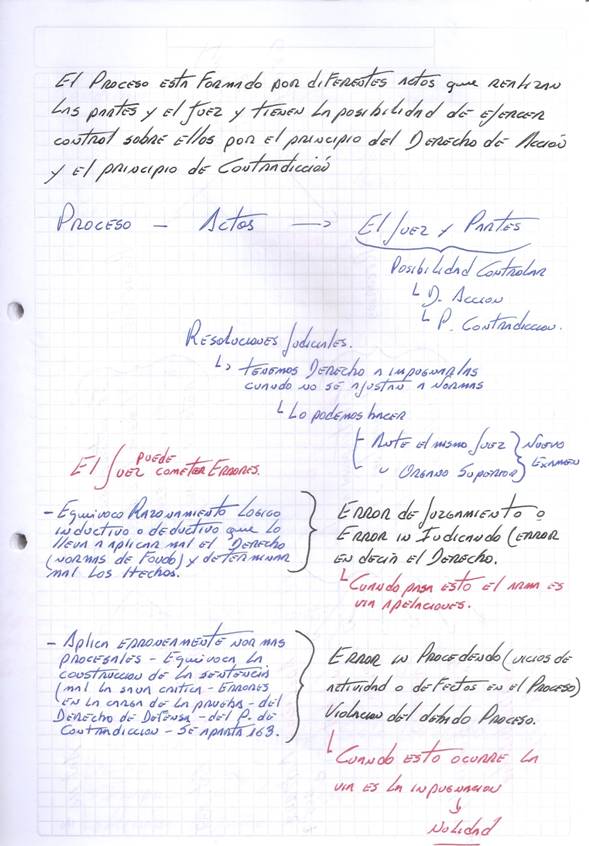 El Proceso esta Formado por diferentes actos que realizan
las partes y el Juez y tienen la posibilidad de ejercer
control sobre Ellos por el principio del Derecho de Acción
y el principio de Contradicción
Proceso — Actos → El Juez y Partes
Posibilidad Controlar
└ D. Accion
└ P. Contradiccion.
Resoluciones Judiciales.
└> tenemos Derecho a impugnarlas
cuando no se ajustan a normas
└ Lo podemos hacer
- Ante el mismo Juez } Nuevo
" Organo Superior } Examen
El Juez puede cometer Errores.
- Equivoco Razonamiento Logico
inductivo o deductivo que lo
lleva a aplicar mal el Derecho
(normas de Fondo) y determinar
mal los Hechos.
Error de Juzgamiento o
Error in Iudicando (error
en decir el Derecho.
└ Cuando pasa esto el arma es
via apelaciones.
- Aplica erroneamente normas
procesales - Equivoca la
construccion de la sentencia
(mal la sana critica - Errores
en la carga de la prueba - del
Derecho de Defensa - del P. de
Contradiccion - Se aparta 163.
Error in Procedendo (vicios de
actividad o defectos en el Proceso)
Violacion del debido Proceso.
└ Cuando esto ocurre la
via es la inpugnacion
↓
Nulidad